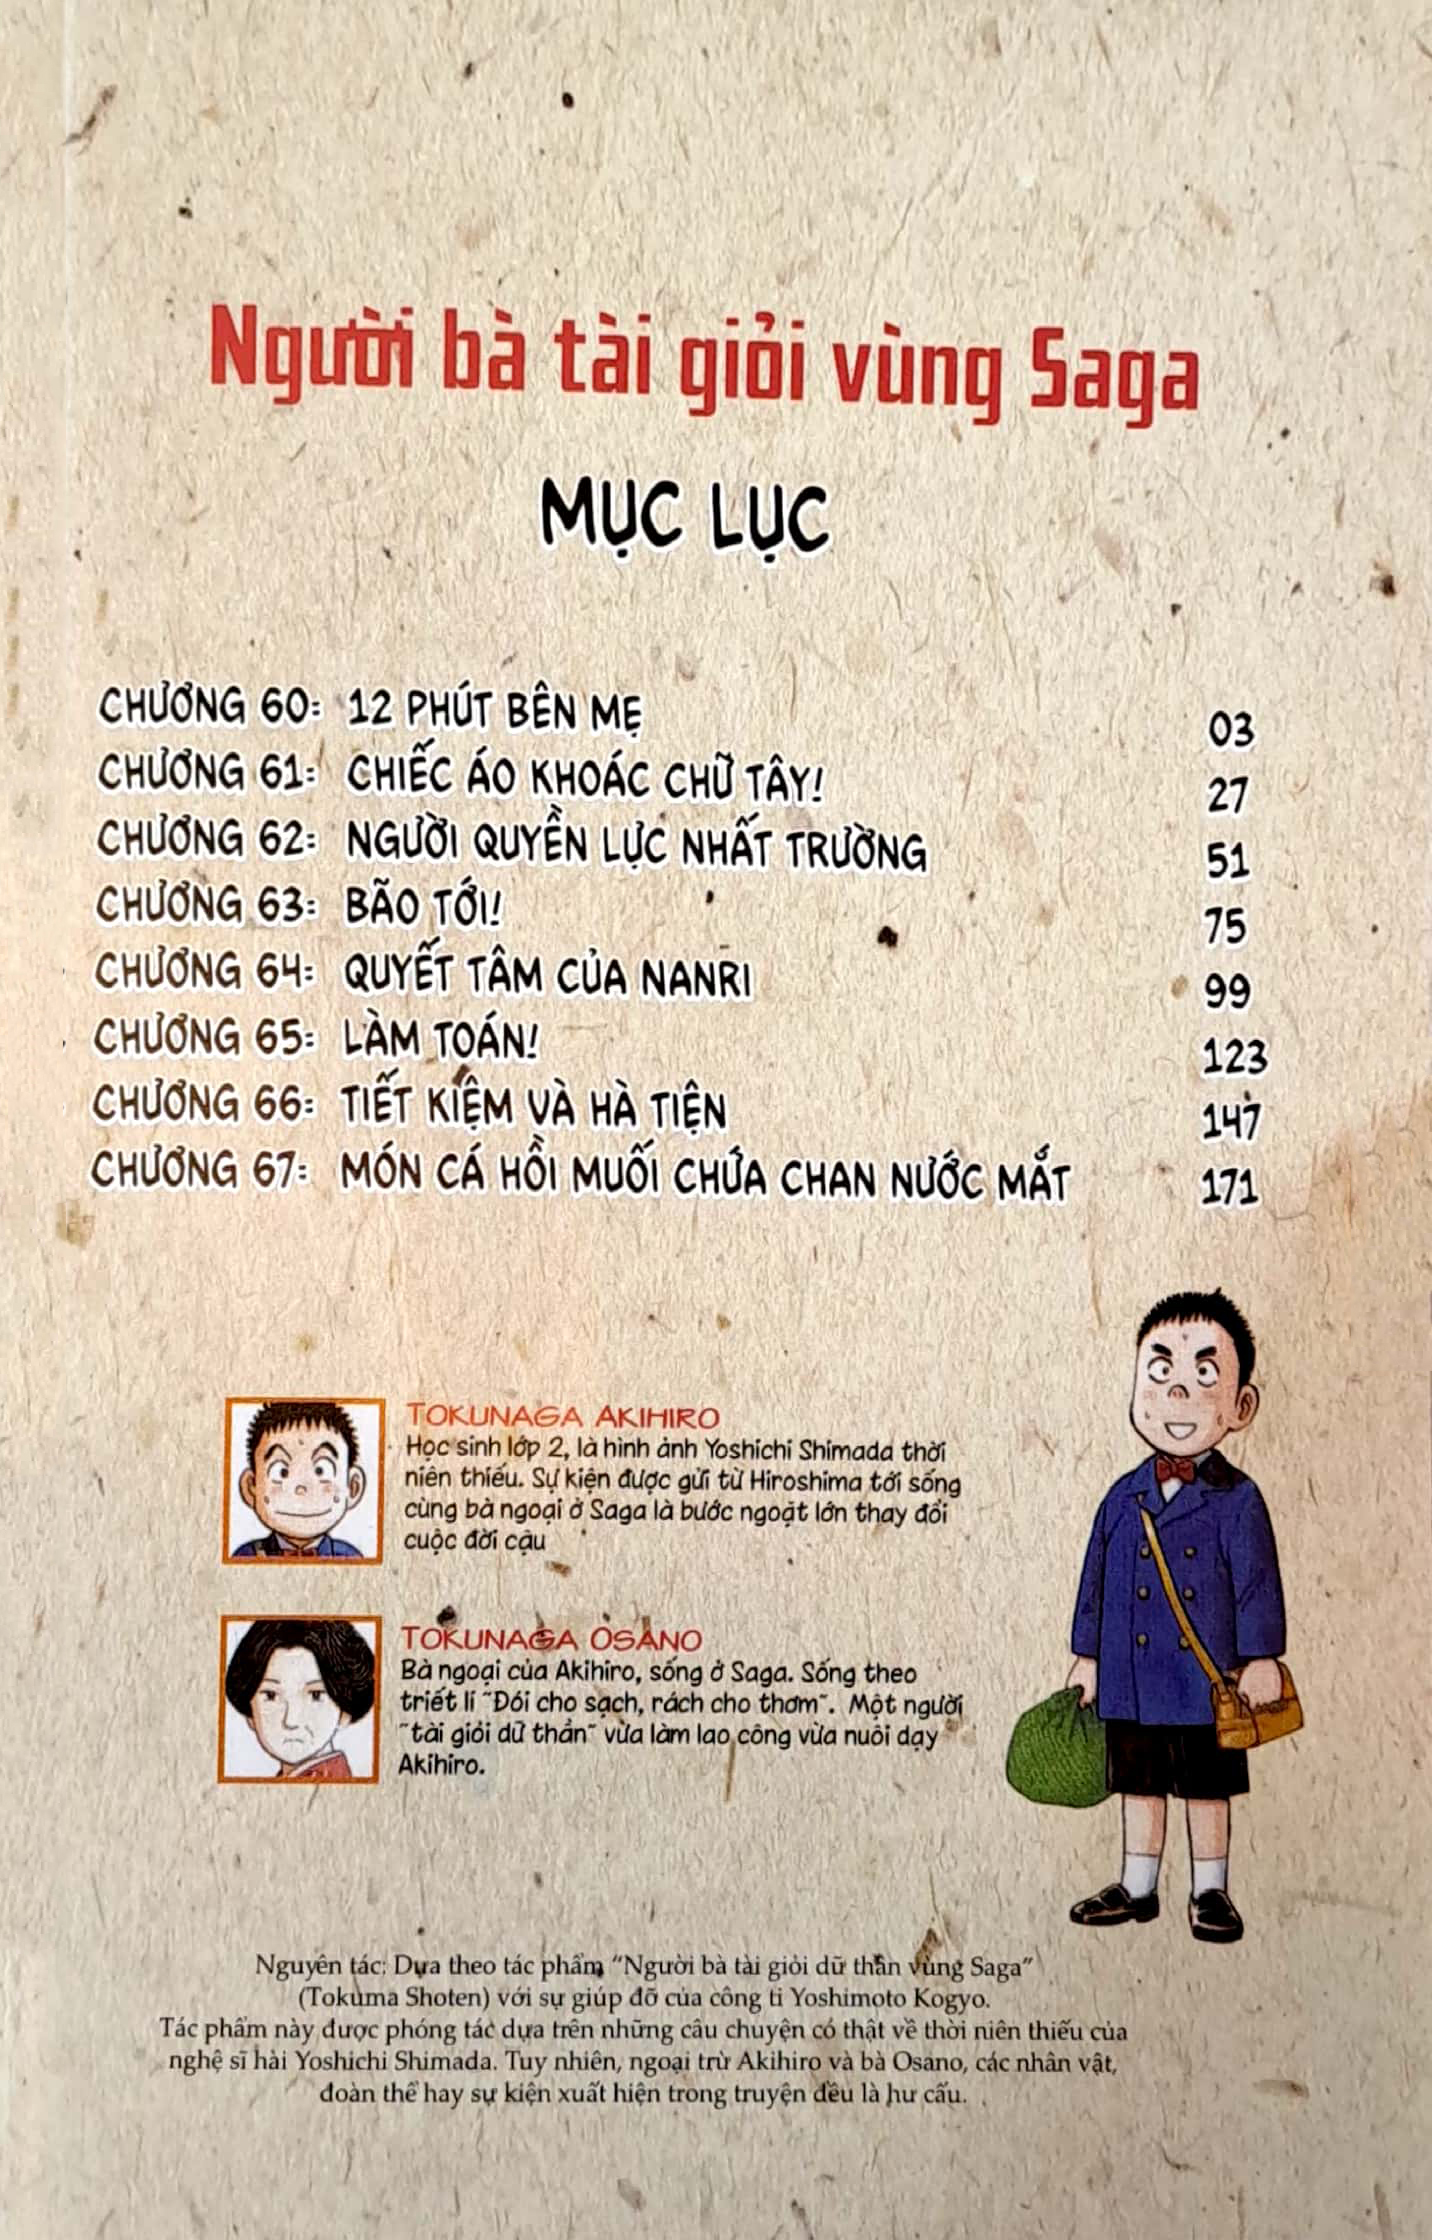 Người bà tài giỏi vùng Saga
MỤC LỤC
CHƯƠNG 60: 12 PHÚT BÊN MẸ 03
CHƯƠNG 61: CHIẾC ÁO KHOÁC CHỮ TÂY! 27
CHƯƠNG 62: NGƯỜI QUYỀN LỰC NHẤT TRƯỜNG 51
CHƯƠNG 63: BÃO TỚI! 75
CHƯƠNG 64: QUYẾT TÂM CỦA NANRI 99
CHƯƠNG 65: LÀM TOÁN! 123
CHƯƠNG 66: TIẾT KIỆM VÀ HÀ TIỆN 147
CHƯƠNG 67: MÓN CÁ HỒI MUỐI CHỨA CHAN NƯỚC MẮT 171
TOKUNAGA AKIHIRO
Học sinh lớp 2, là hình ảnh Yoshichi Shimada thời
niên thiếu. Sự kiện được gửi từ Hiroshima tới sống
cùng bà ngoại ở Saga là bước ngoặt lớn thay đổi
cuộc đời cậu
TOKUNAGA OSANO
Bà ngoại của Akihiro, sống ở Saga. Sống theo
triết lí "Đói cho sạch, rách cho thơm". Một người
"tài giỏi dữ thần" vừa làm lao công vừa nuôi dạy
Akihiro.
Nguyên tác: Dựa theo tác phẩm "Người bà tài giỏi dữ thần vùng Saga"
(Tokuma Shoten) với sự giúp đỡ của công ti Yoshimoto Kogyo.
Tác phẩm này được phóng tác dựa trên những câu chuyện có thật về thời niên thiếu của
nghệ sĩ hài Yoshichi Shimada. Tuy nhiên, ngoại trừ Akihiro và bà Osano, các nhân vật,
đoàn thể hay sự kiện xuất hiện trong truyện đều là hư cấu.